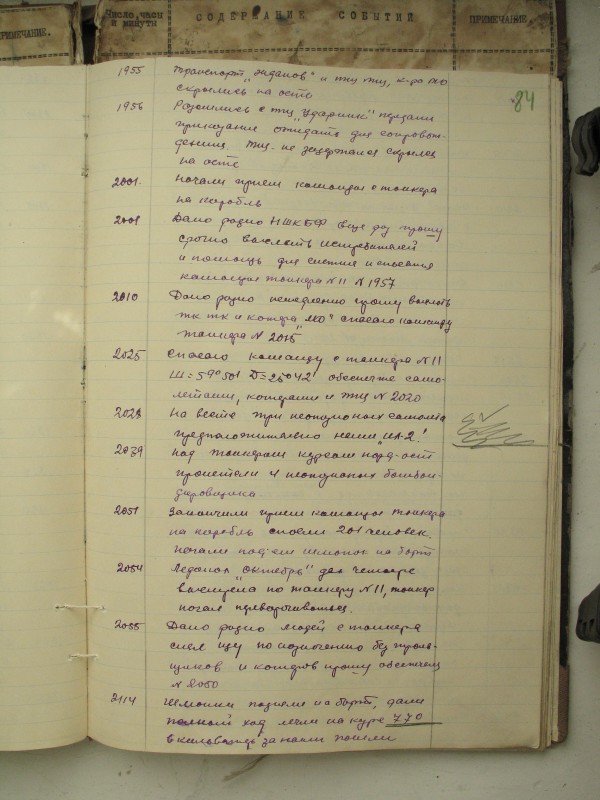 ПРИМЕЧАНИЕ.
Число, часы и минуты
СОДЕРЖАНИЕ СОБЫТИЙ
ПРИМЕЧАНИЕ.
84
1955 Транспорт "Жданов" и тщ тщ,
скрылись на осте
1956 Разошлись с тщ "Ударник" передали
приказание ожидать для сопровож-
дения. тщ - не задержался скрылся
на осте
2001. Начали прием команды с танкера
на корабль
2001 Дано радио НШКБФ еще раз прошу
срочно выслать истребителей
и помощь для снятия и спасения
команды танкера N 11 N 1957
2010 Дано радио немедленно прошу выслать
тк тк и катера МО" спасаю команду
танкера N 2015
2025 Спасаю команду с танкера N 11
Ш=59°50' Д=25°42' обеспечте само-
летами, катерами и ТЩ N 2020
2028 На весте три неопознаных самолета
предположительно наши "ИЛ-2"!
2039 Над танкерами курсом норд-ост
пролетели 4 неопознаных бомбар-
дировщика
2051 Закончили прием команды танкера
на корабль сняли 201 человек.
Начали под'ем шлюпок на борт
2054 Ледокол "Октябрь" дал четыре
выстрела по танкеру N 11, танкер
начал переворачиваться.
2055 Дано радио людей с танкера
снял иду по назначению без траль-
щиков и катеров прошу обеспечить
N 2050
2114 Шлюпки подняли на борт, дали
полный ход легли на курс 77°
в кильватер за нами пошли